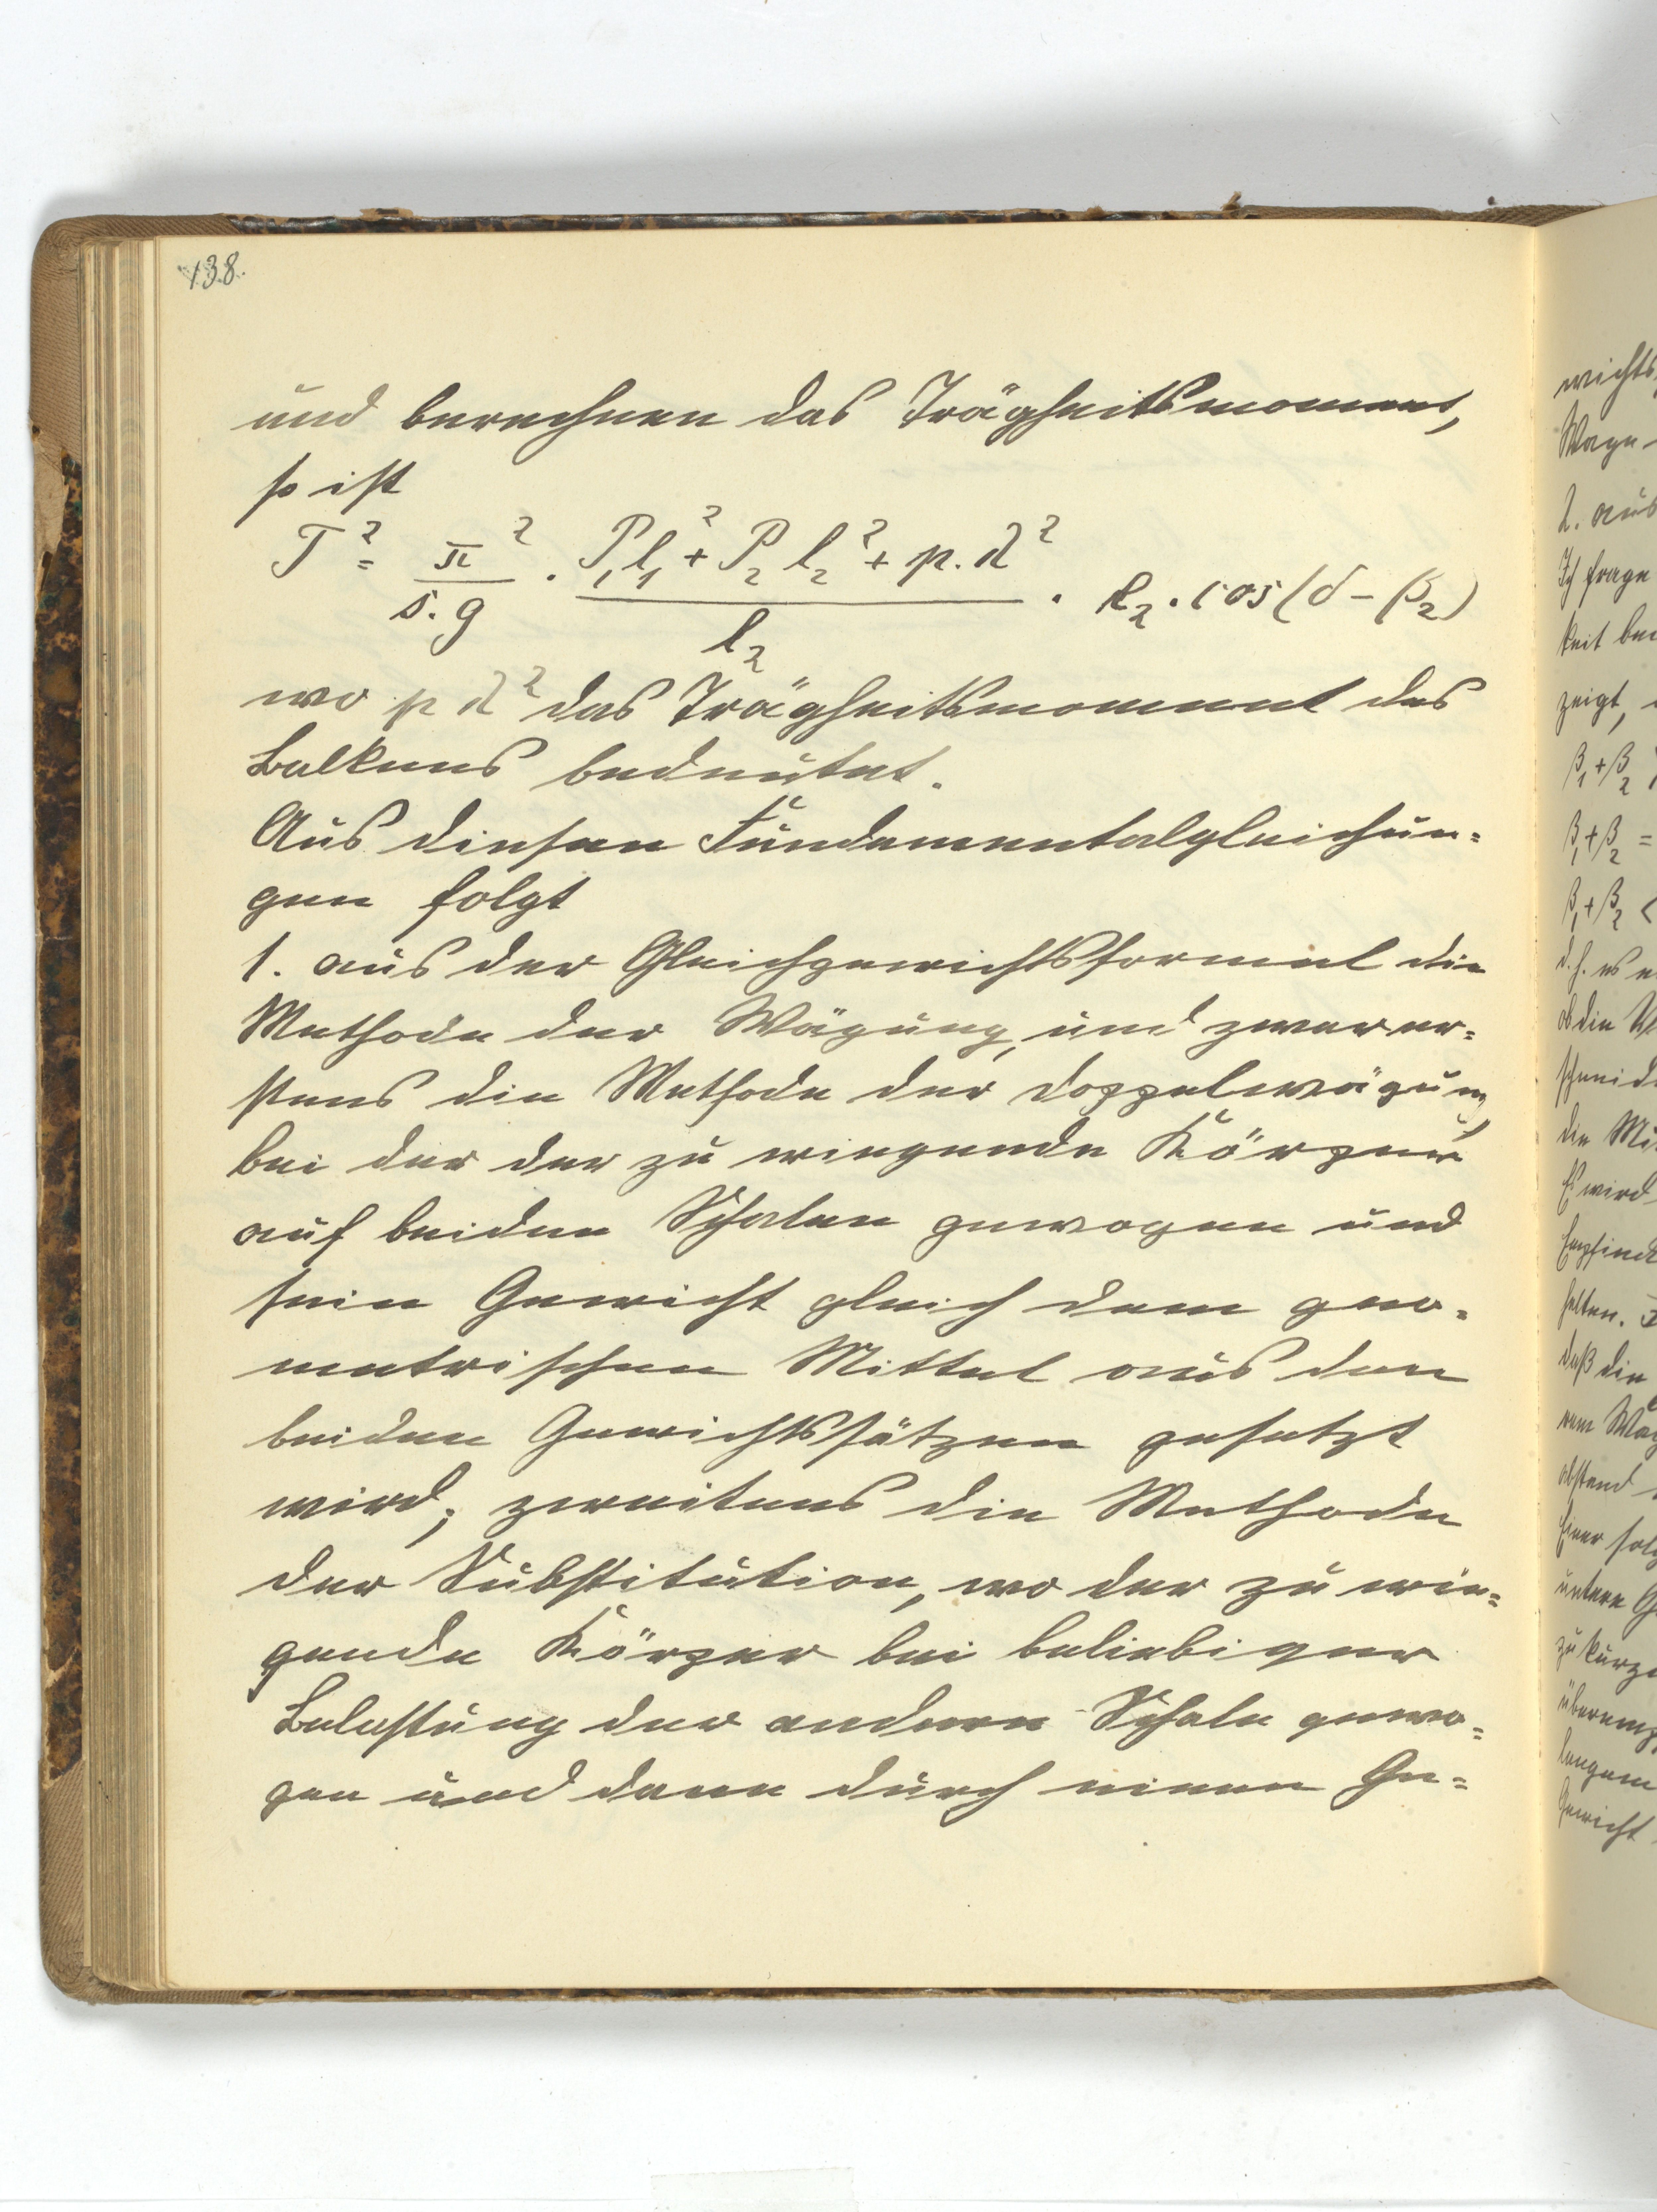 138.
und berechnen das Trägheitsmoment,
so ist
T² = π²/s.g · (P₁l₁² + P₂l₂² + p.λ²)/l₂ · l₂.cos(δ-β₂)
wo pλ² das Trägheitsmoment des
Balkens bedeutet.
Aus diesen Fundamentalgleichun=
gen folgt
1. aus der Gleichgewichtsformel die
Methode der Wägung, und zwar er=
stens die Methode der Doppelwägung,
bei der der zu wiegende Körper
auf beiden Schalen gewogen und
sein Gewicht gleich dem geo=
metrischen Mittel aus den
beiden Gewichtssätzen gesetzt
wird; zweitens die Methode
der Substitution, wo der zu wie=
gende Körper bei beliebiger
Belastung der andern Schale gewo=
gen und dann durch einen Ge=
wichts
Wage
2. aus
Ich frage
keit bei
zeigt,
β₁+β₂
β₁+β₂ =
β₁+β₂ <
d.h. es
ob die
schneid
die Mi
Es wird
Empfind
halten.
daß die
abstand
Einer sol
untere
zu kurz
langem
Gewicht